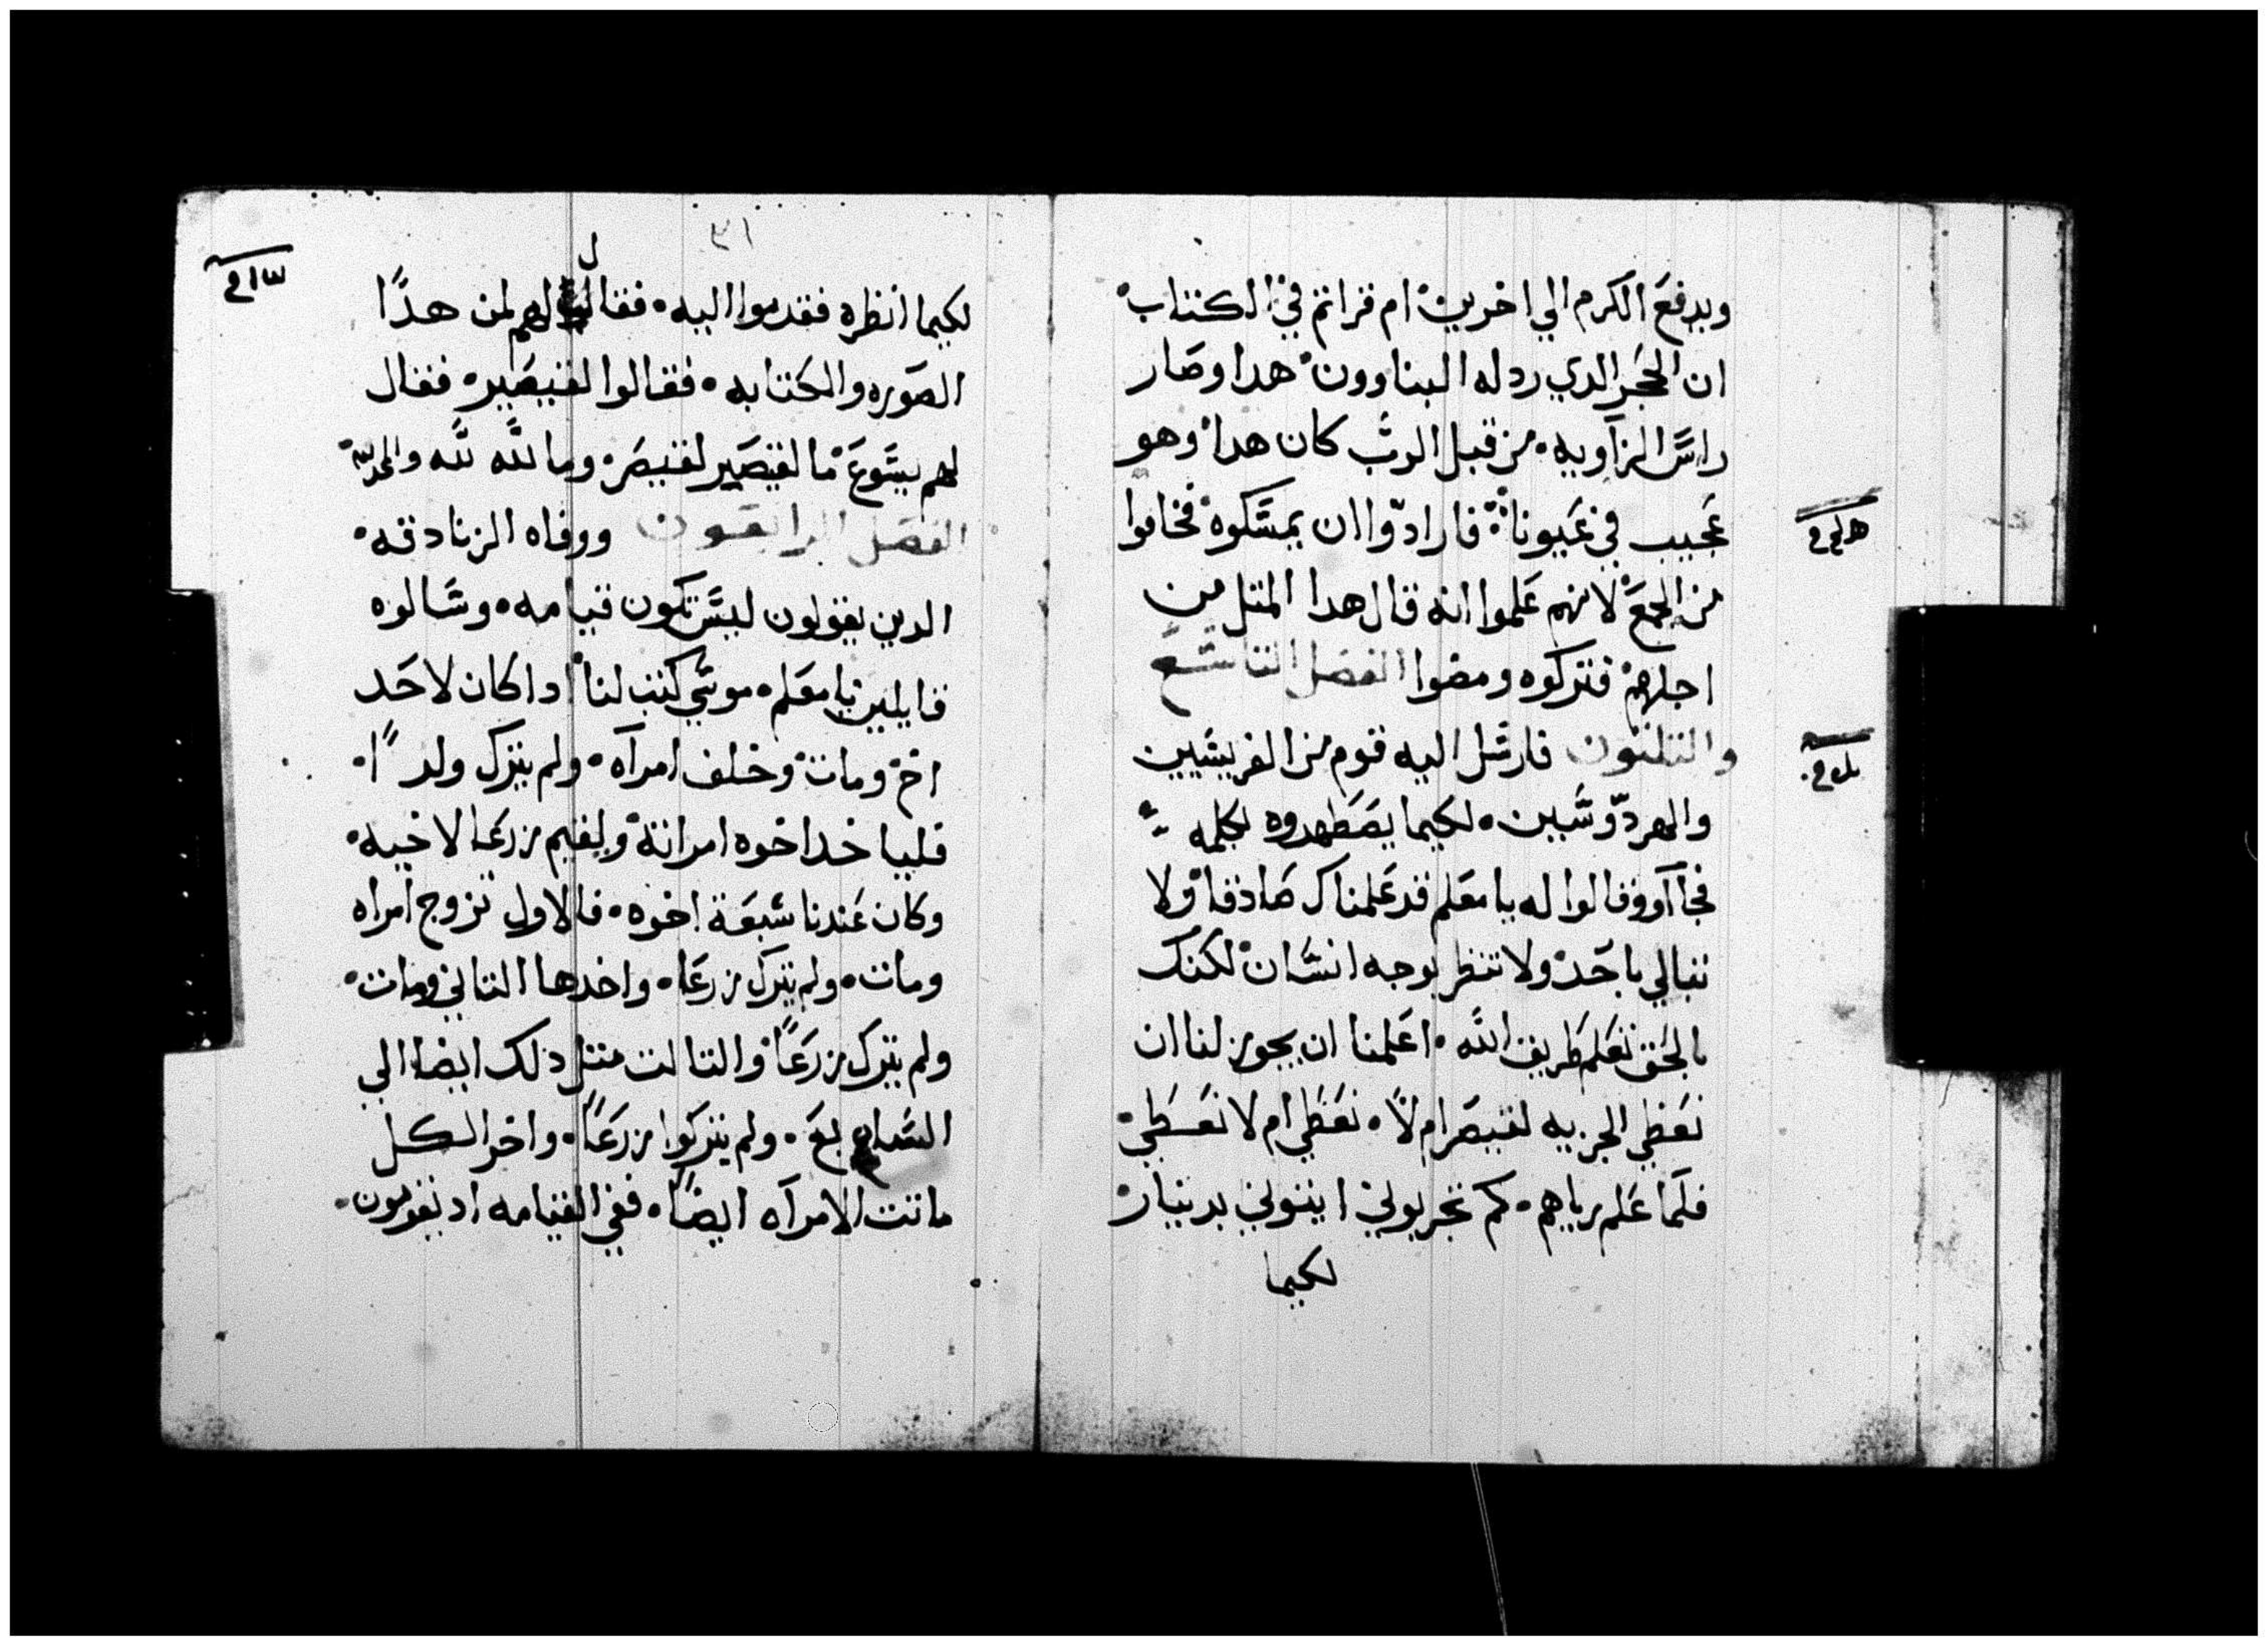 ويدفع الكرم الي اخرين ام قراتم في الكتاب
ان الحجر الدي ردله البناوون هدا وصار
راس الزاويه من قبل الرب كان هدا وهو
عجيب في عيونا فارادوا ان يمسكوه فخافوا
من الجمع لانهم علموا انه قال هدا المتل من
اجلهم فتركوه ومضوا الفصل التاسع
والتلتون فارسل اليه قوم من الفريسيين
والهردوسيين لكيما يصطهدوه بكلمه
فجااو وقالوا له يا معلم قد علمناك صادقا ولا
تبالي باحد ولا تنظر بوجه انسان لكنك
بالحق تعلم طريق الله اعلمنا ان يجوز لنا ان
نعطي الجزيه لقيصر ام لا نعطي ام لا نعطي
فلما علم رياهم كم تجربوني ايتوني بدينار
لكيما
٣١
لكيما انظره فقدموا اليه فقال لهم لمن هدا
الصوره والكتابه فقالوا لقيصير فقال
لهم يسوع ما لقيصير لقيصر وما لله لله والمجد لله
الفصل الرابعون ووفاه الزنادقه
الدين يقولون ليس تكون قيامه وسالوه
قايلين يا معلم موسي كتب لنا ادا كان لاحد
اخ ومات وخلف امراه ولم يترك ولدا
فليا خد اخوه امراته وليقيم زرعا لاخيه
وكان عندنا سبعة اخوه فالاول تزوج امراه
ومات ولم يترك زرعا واخدها التاني ومات
ولم يترك زرعا والتالت متل ذلك ايضا الي
السابع ولم يتركوا زرعا واخر الكل
ماتت الامراه ايضا ففي القيامه اد يقومون